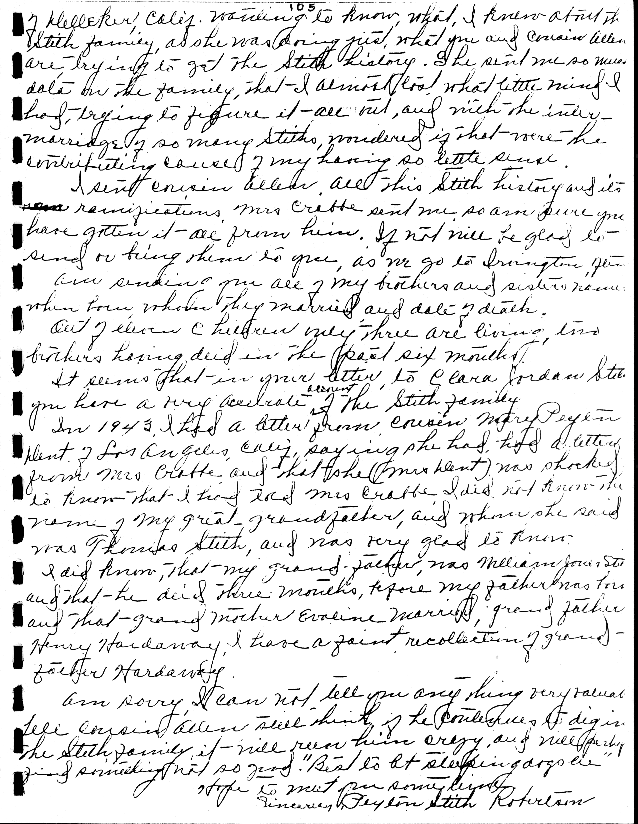 105
of Melleker, Calif. wanting to know, what, I knew about th
Stith family, as she was doing just, what you and Cousin Allen
are, trying to get the Stith history. She sent me so much
data on the family, that I almost lost what little mind I
had, trying to figure it all out, and with the inter-
marriage of so many Stiths, wondered if that were the
contributing cause of my having so little sense.
I sent cousin Allen, all this Stith history and its
ramifications, Mrs Crabbe sent me, so am sure you
have gotten it all from him. If not will be glad to
send or bring them to you, as we go to Irvington,
Am sending you all of my brothers and sisters name
when born, whom they married, and date of death.
Out of eleven Children only three are living, two
brothers having deid in the past six months.
It seems that in your letter, to Clara Jordan Stith
you have a very accurate account of the Stith family
In 1943, I had a letter from cousin Mary Peyton
Kent, of Los Angeles, Calif, saying she had, had a letter,
from Mrs Crabbe and that she (Mrs Kent) was shocked,
to know that I had told Mrs Crabbe I did not know the
name of my great grandfather, and whom she said
was Thomas Stith, and was very glad to know.
I did know, that my grand-father, was William Jones Sti
and that he deid three months, before my father was born
and that grand mother Eveline married, grand father
Henry Hardaway, I have a faint recollection of grand-
father Hardaway.
Am sorry I can not tell you any thing very valuat
tell cousin Allen still think, if he continues to dig in
the Stith family, it will run him crazy, and will
find something not so good. "Best to let sleeping dogs lie"
Hope to meet you sometime
Sincerely Peyton Stith Robertson